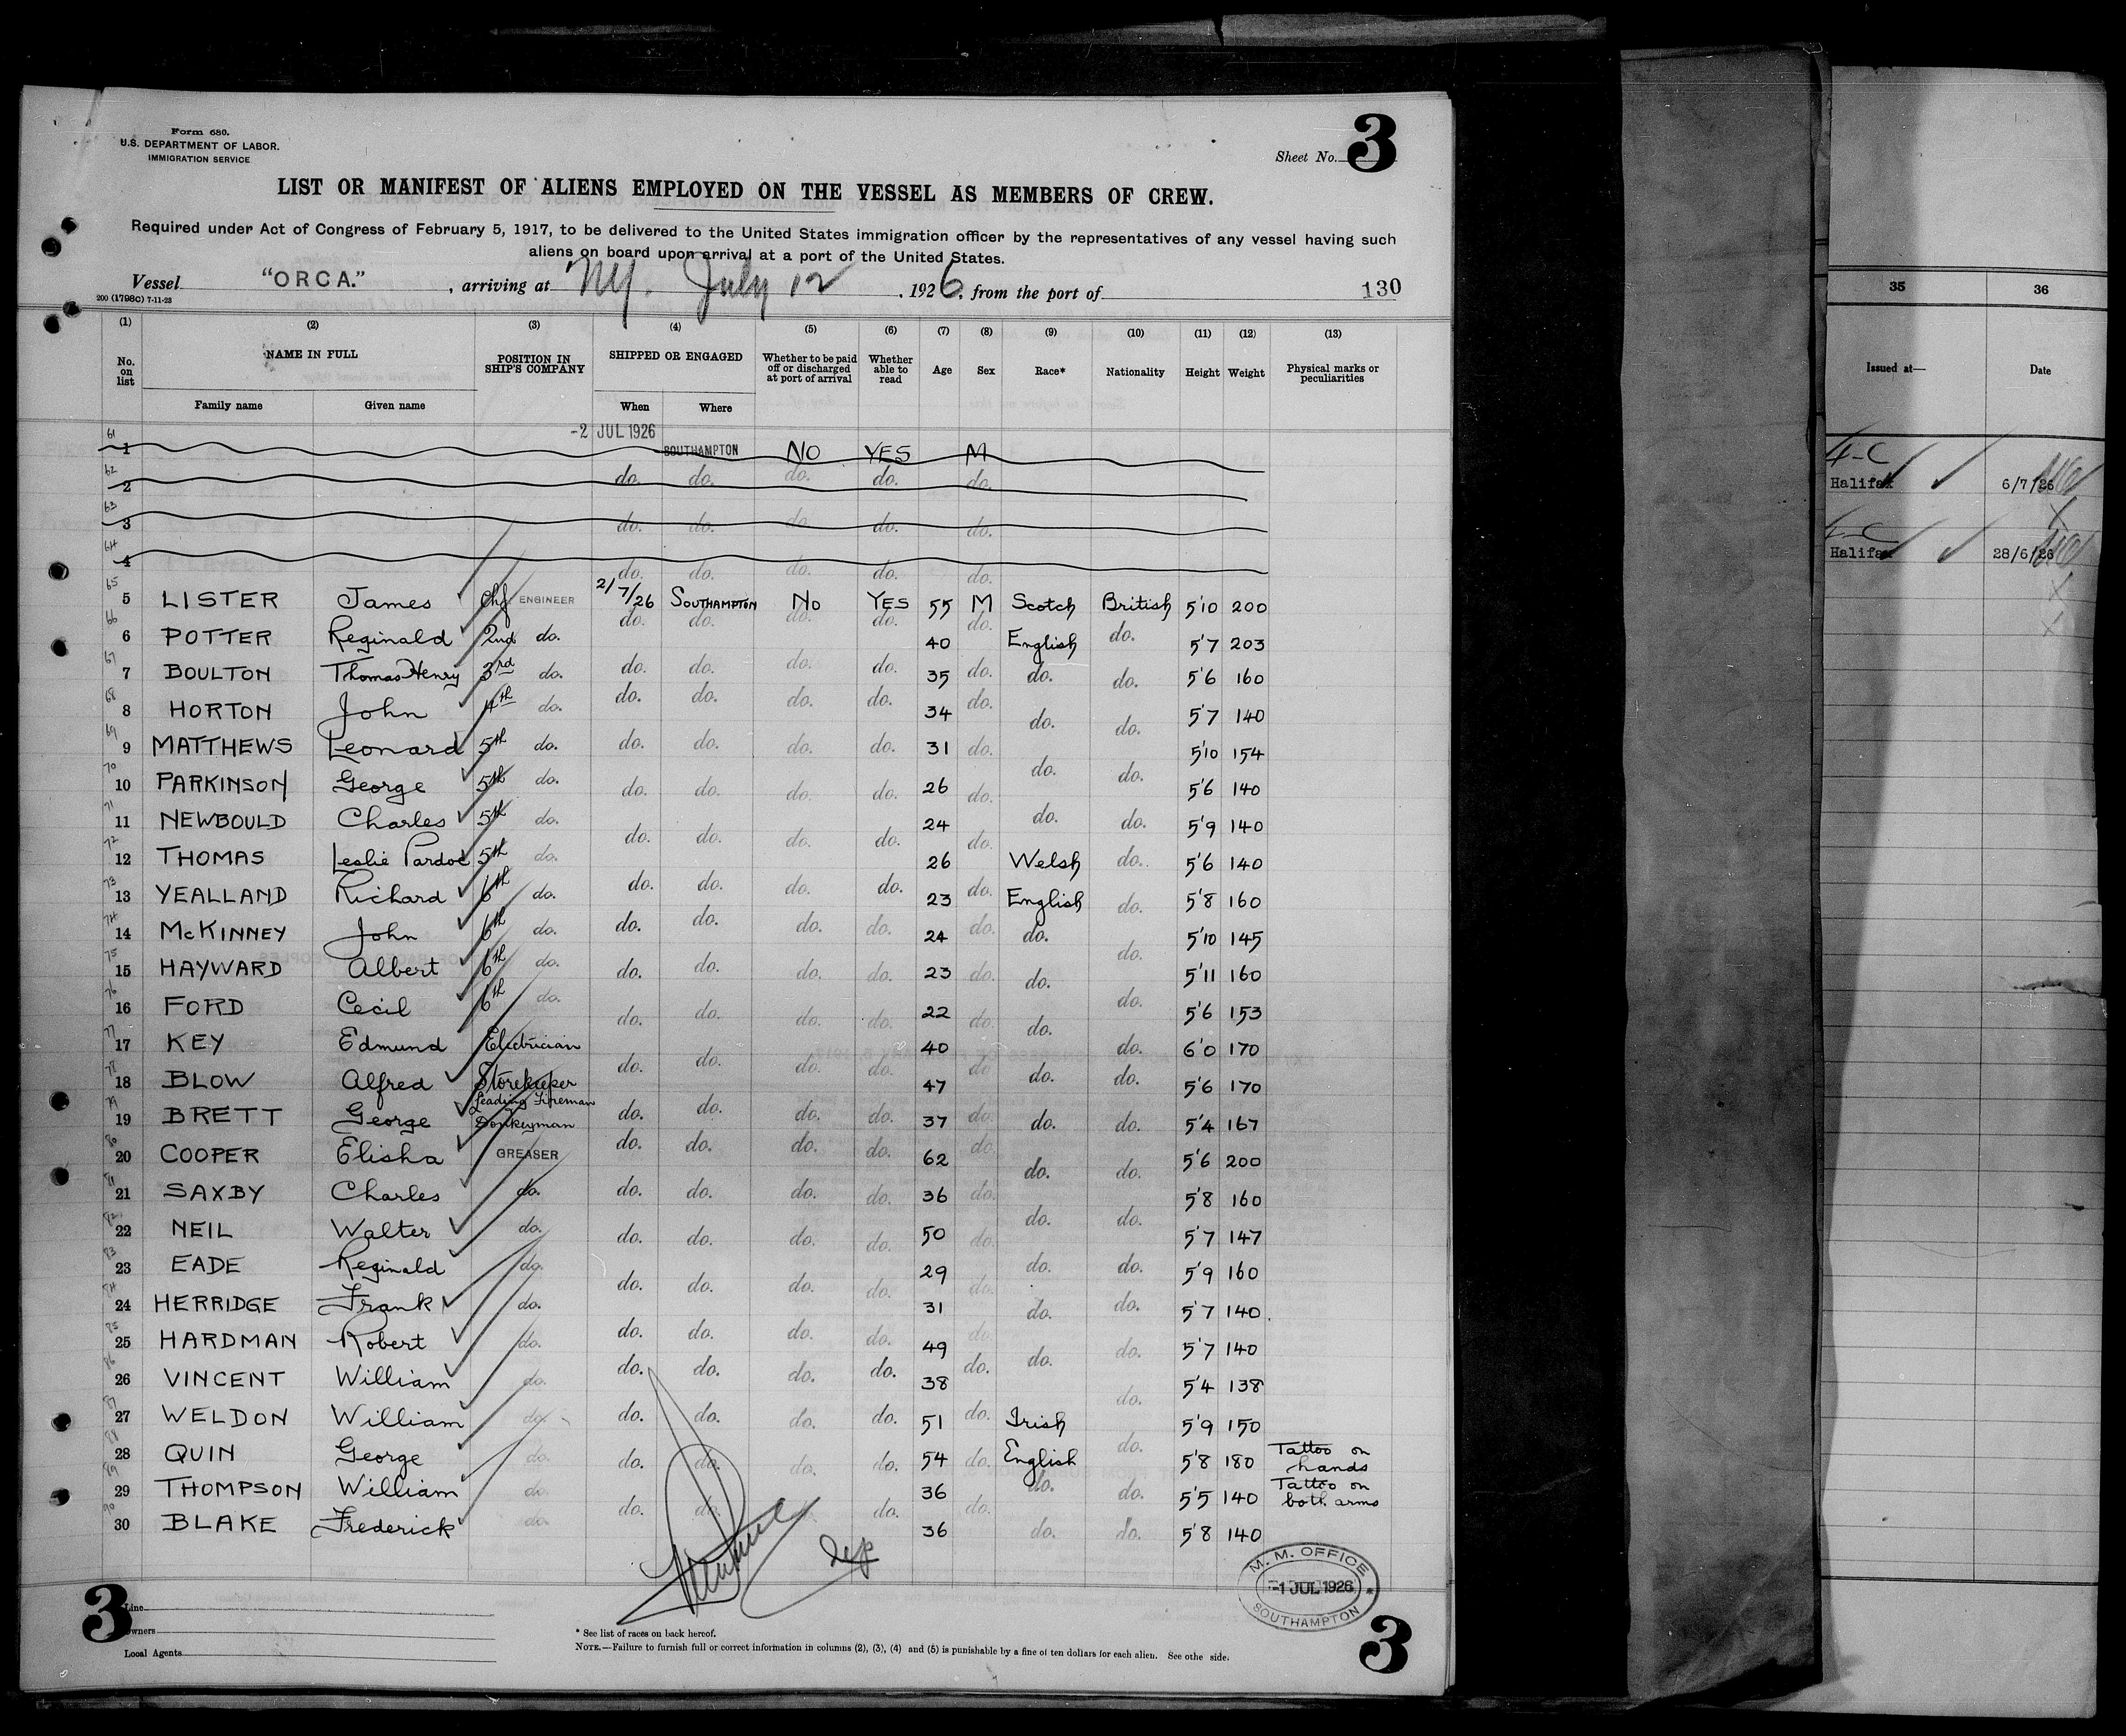 Form 680.
U.S. DEPARTMENT OF LABOR.
IMMIGRATION SERVICE
Sheet No. 3
LIST OR MANIFEST OF ALIENS EMPLOYED ON THE VESSEL AS MEMBERS OF CREW.
Required under Act of Congress of February 5, 1917, to be delivered to the United States immigration officer by the representatives of any vessel having such
aliens on board upon arrival at a port of the United States.
Vessel "ORCA." , arriving at NY. July 12 , 1926, from the port of 130
200 (1798C) 7-11-23
(1) (2) (3) (4) (5) (6) (7) (8) (9) (10) (11) (12) (13)
No. on list NAME IN FULL POSITION IN SHIP'S COMPANY SHIPPED OR ENGAGED Whether to be paid off or discharged at port of arrival Whether able to read Age Sex Race* Nationality Height Weight Physical marks or peculiarities
Family name Given name When Where
-2 JUL 1926
61 1 SOUTHAMPTON NO YES M
62 2 do. do. do. do. do.
63 3 do. do. do. do. do.
64 4 do. do. do. do. do.
65 5 LISTER James Chf ENGINEER 2/7/26 SOUTHAMPTON No YES 55 M Scotch British 5'10 200
66 6 POTTER Reginald 2nd do. do. do. do. do. 40 do. English do. 5'7 203
67 7 BOULTON Thomas Henry 3rd do. do. do. do. do. 35 do. do. do. 5'6 160
68 8 HORTON John 4th do. do. do. do. do. 34 do. do. do. 5'7 140
69 9 MATTHEWS Leonard 5th do. do. do. do. do. 31 do. do. do. 5'10 154
70 10 PARKINSON George 5th do. do. do. do. do. 26 do. do. do. 5'6 140
71 11 NEWBOULD Charles 5th do. do. do. do. do. 24 do. do. do. 5'9 140
72 12 THOMAS Leslie Pardoe 5th do. do. do. do. do. 26 do. Welsh do. 5'6 140
73 13 YEALLAND Richard 6th do. do. do. do. do. 23 do. English do. 5'8 160
74 14 McKINNEY John 6th do. do. do. do. do. 24 do. do. do. 5'10 145
75 15 HAYWARD Albert 6th do. do. do. do. do. 23 do. do. do. 5'11 160
76 16 FORD Cecil 6th do. do. do. do. do. 22 do. do. do. 5'6 153
77 17 KEY Edmund Electrician do. do. do. do. 40 do. do. do. 6'0 170
78 18 BLOW Alfred Storekeeper do. do. do. do. 47 do. do. do. 5'6 170
79 19 BRETT George Leading Fireman Donkeyman do. do. do. do. 37 do. do. do. 5'4 167
80 20 COOPER Elisha GREASER do. do. do. do. 62 do. do. do. 5'6 200
81 21 SAXBY Charles do. do. do. do. do. 36 do. do. do. 5'8 160
82 22 NEIL Walter do. do. do. do. do. 50 do. do. do. 5'7 147
83 23 EADE Reginald do. do. do. do. do. 29 do. do. do. 5'9 160
84 24 HERRIDGE Frank do. do. do. do. do. 31 do. do. do. 5'7 140.
85 25 HARDMAN Robert do. do. do. do. do. 49 do. do. do. 5'7 140
86 26 VINCENT William do. do. do. do. do. 38 do. do. 5'4 138
87 27 WELDON William do. do. do. do. do. 51 do. Irish do. 5'9 150
88 28 QUIN George do. do. do. do. do. 54 do. English do. 5'8 180 Tattoo on hands
89 29 THOMPSON William do. do. do. do. do. 36 do. do. do. 5'5 140 Tattoo on both arms
90 30 BLAKE Frederick do. 36 do. do. 5'8 140
M. M. OFFICE
-1 JUL 1926
SOUTHAMPTON
3 Line
Owners
Local Agents
* See list of races on back hereof.
NOTE.—Failure to furnish full or correct information in columns (2), (3), (4) and (5) is punishable by a fine of ten dollars for each alien. See othe side.
3
35 36
Issued at— Date
4-C
Halifax 6/7/26
4-C
Halifax 28/6/26